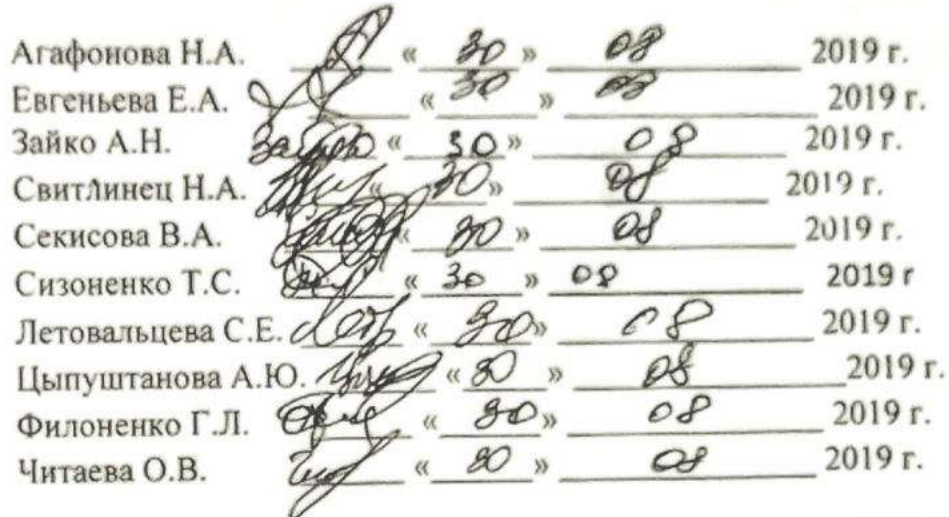 Агафонова Н.А. « 30 » 08 2019 г.
Евгеньева Е.А. « 30 » 08 2019 г.
Зайко А.Н. « 30 » 08 2019 г.
Свитлинец Н.А. « 30 » 08 2019 г.
Секисова В.А. « 30 » 08 2019 г.
Сизоненко Т.С. « 30 » 08 2019 г
Летовальцева С.Е. « 30 » 08 2019 г.
Цыпуштанова А.Ю. « 30 » 08 2019 г.
Филоненко Г.Л. « 30 » 08 2019 г.
Читаева О.В. « 30 » 08 2019 г.